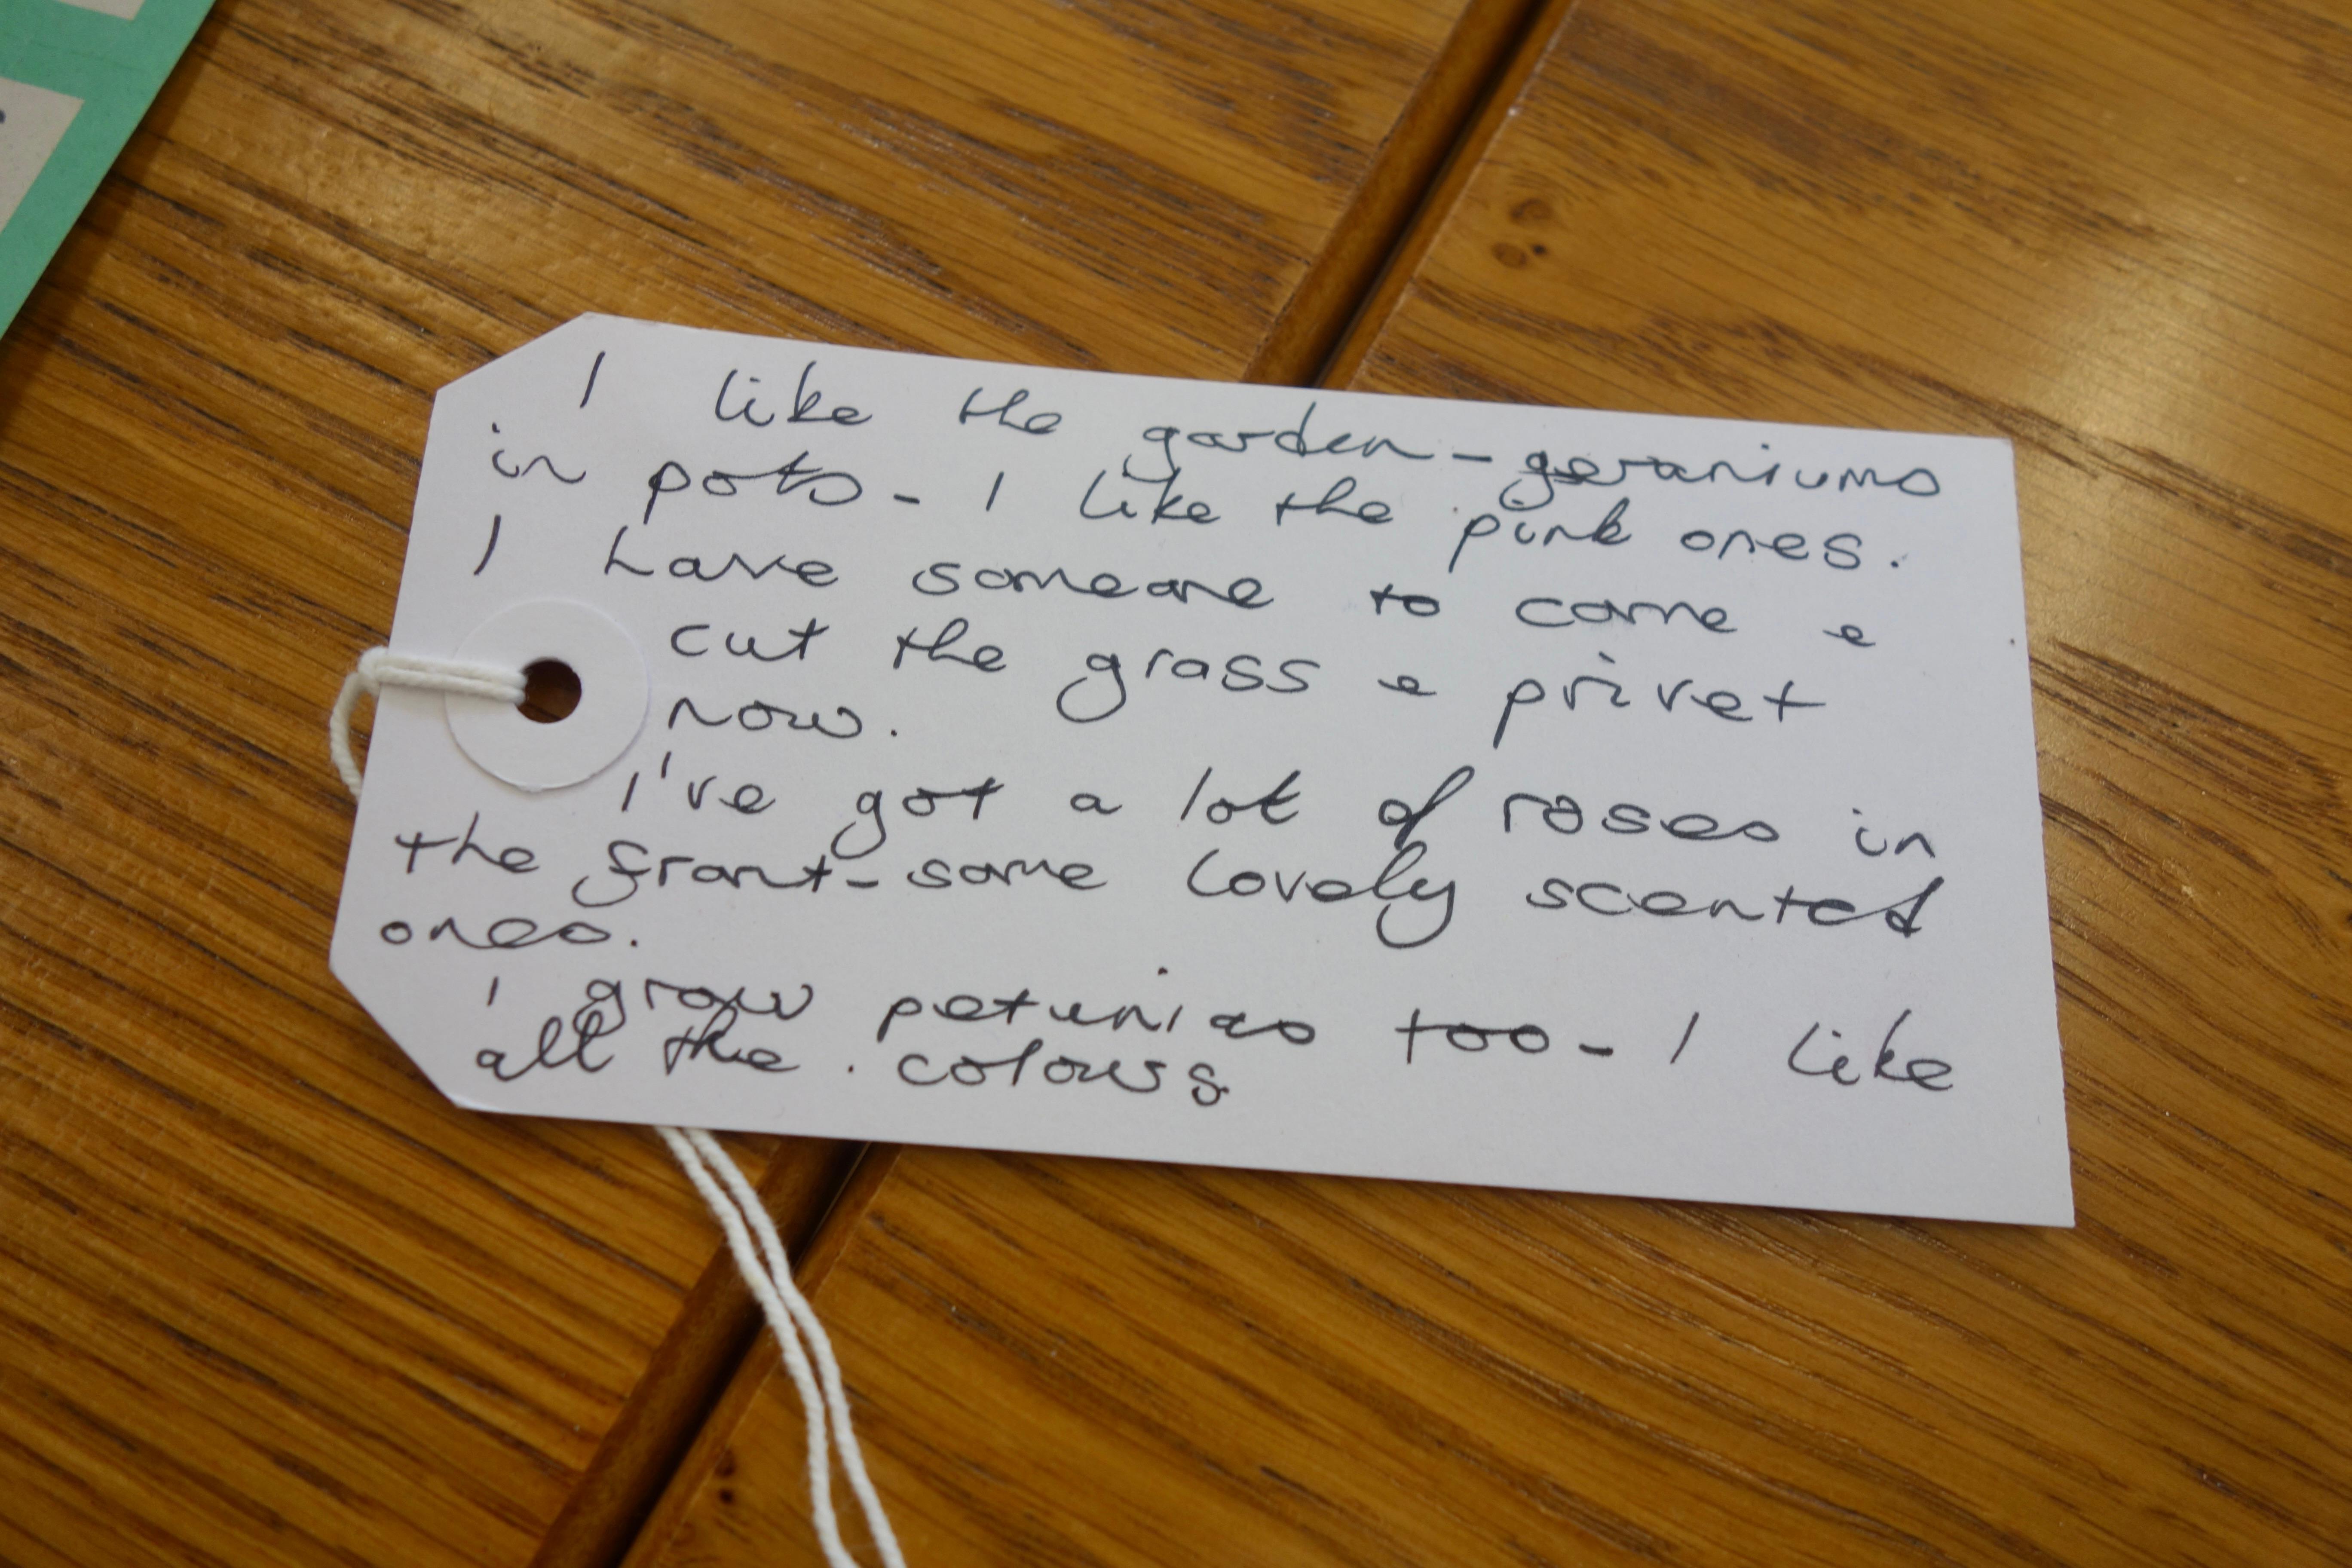 I like the garden - geraniums
in pots - I like the pink ones.
I have someone to come e
cut the grass e privet
now.
I've got a lot of roses in
the front - some lovely scented
ones.
I grow petunias too - I like
all the . colours